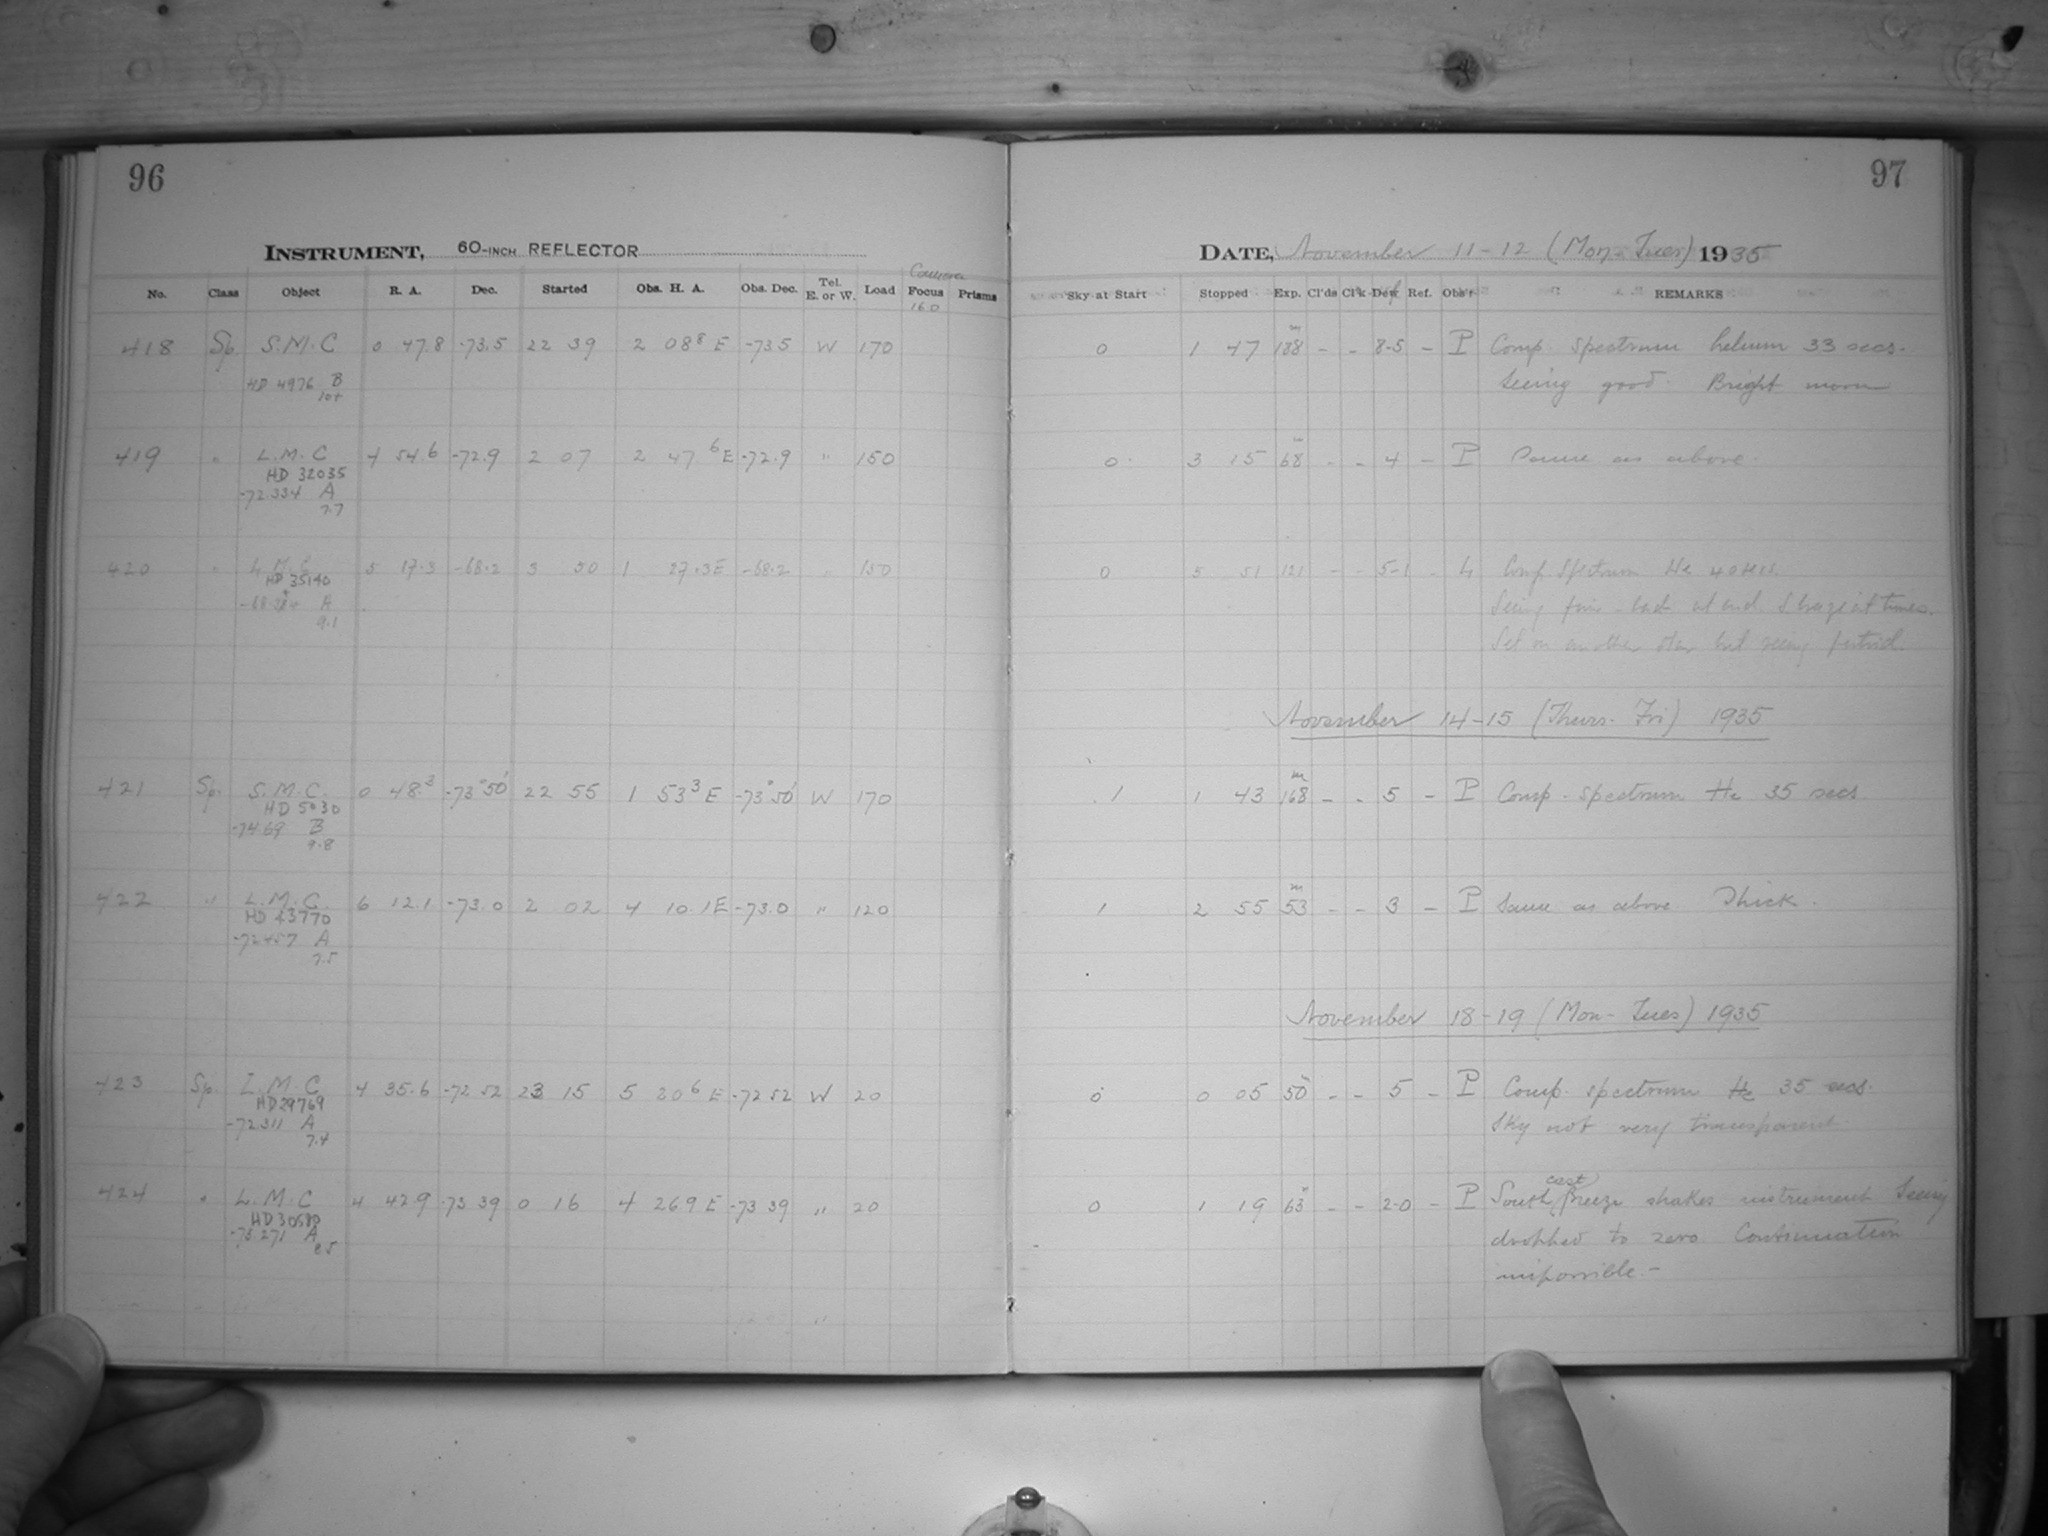 96
INSTRUMENT, 60-INCH REFLECTOR
Camera
No. Class Object R. A. Dec. Started Obs. H. A. Obs. Dec. Tel. E. or W. Load Focus Prisms
160
418 Sp. S.M.C 0 47.8 -73.5 22 39 2 08⁸ E -73.5 W 170
HD 4976 B
419 " L.M.C 4 54.6 -72.9 2 07 2 47⁶ E -72.9 " 150
HD 32035
-72.334 A
7.7
420 " L.M.C 5 17.3 -68.2 3 50 1 27.3 E -68.2 " 150
HD 35140
A
9.1
421 Sp. S.M.C. 0 48.³ -73° 50' 22 55 1 53³ E -73° 50' W 170
HD 5030
-74.69 B
9.8
422 " L.M.C. 6 12.1 -73.0 2 02 4 10.1 E -73.0 " 120
HD 43770
-72 457 A
7.5
423 Sp L.M.C 4 35.6 -72 52 23 15 5 20⁶ E -72 52 W 20
HD 29769
-72.311 A
7.4
424 " L.M.C 4 42.9 -73 39 0 16 4 26.9 E -73 39 " 20
-73 271 A
8.5
97
DATE, November 11-12 (Mon-Tues) 1935
Sky at Start Stopped Exp. Cl'ds Cl'k Dew Ref. Obs'r REMARKS
0 1 47 188ᵐ - - 8-5 - P Comp. spectrum helium 33 secs.
Seeing good. Bright moon
0 3 15 68 - - 4 - P Same as above.
0 5 51 121 - - 5-1 - Comp Spectrum He 40 secs.
Seeing fine - bad at end. S breeze at times.
Set on another star but seeing
November 14-15 (Thurs. Fri) 1935
1 1 43 168ᵐ - - 5 - P Comp. spectrum He 35 secs
1 2 55 53ᵐ - - 3 - P Same as above. Thick.
November 18-19 (Mon-Tues) 1935
0 0 05 50 - - 5 - P Comp. spectrum He 35 secs.
Sky not very transparent.
0 1 19 63 - - 2-0 - P South east breeze shakes instrument Seeing
dropped to zero Continuation
impossible.-